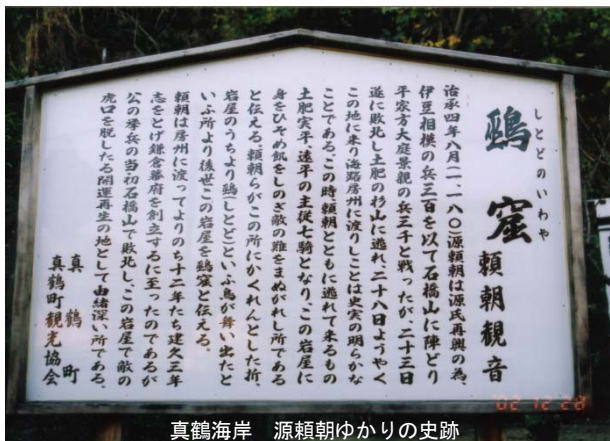 しとどのいわや
鵐窟 頼朝観音
治承四年八月(一一八〇)源頼朝は源氏再興の為、
伊豆相模の兵三百を以て石橋山に陣どり
平家方大庭景親の兵三千と戦ったが、二十三日
遂に敗北し土肥の杉山に逃れ、二十八日ようやく
この地に来り海路房州に渡りしことは史実の明らかな
ことである、この時、頼朝とともに逃れて来るもの
土肥実平、遠平の主従七騎となり、この岩屋に
身をひそめ飢をしのぎ敵の難をまぬがれし所である
と伝える、頼朝らがこの所にかくれんとした折、
岩屋のうちより鵐(しとど)といふ鳥が舞い出たと
いふ所より後世この岩屋を鵐窟と伝える。
頼朝は房州に渡ってよりのち十二年たち建久三年
志をとげ鎌倉幕府を創立するに至ったのであるが
公の挙兵の当初石橋山で敗北し、この岩屋で敵の
虎口を脱したる開運再生の地として由緒深い所である。
真鶴町
真鶴町観光協会
'02 12 28
真鶴海岸 源頼朝ゆかりの史跡